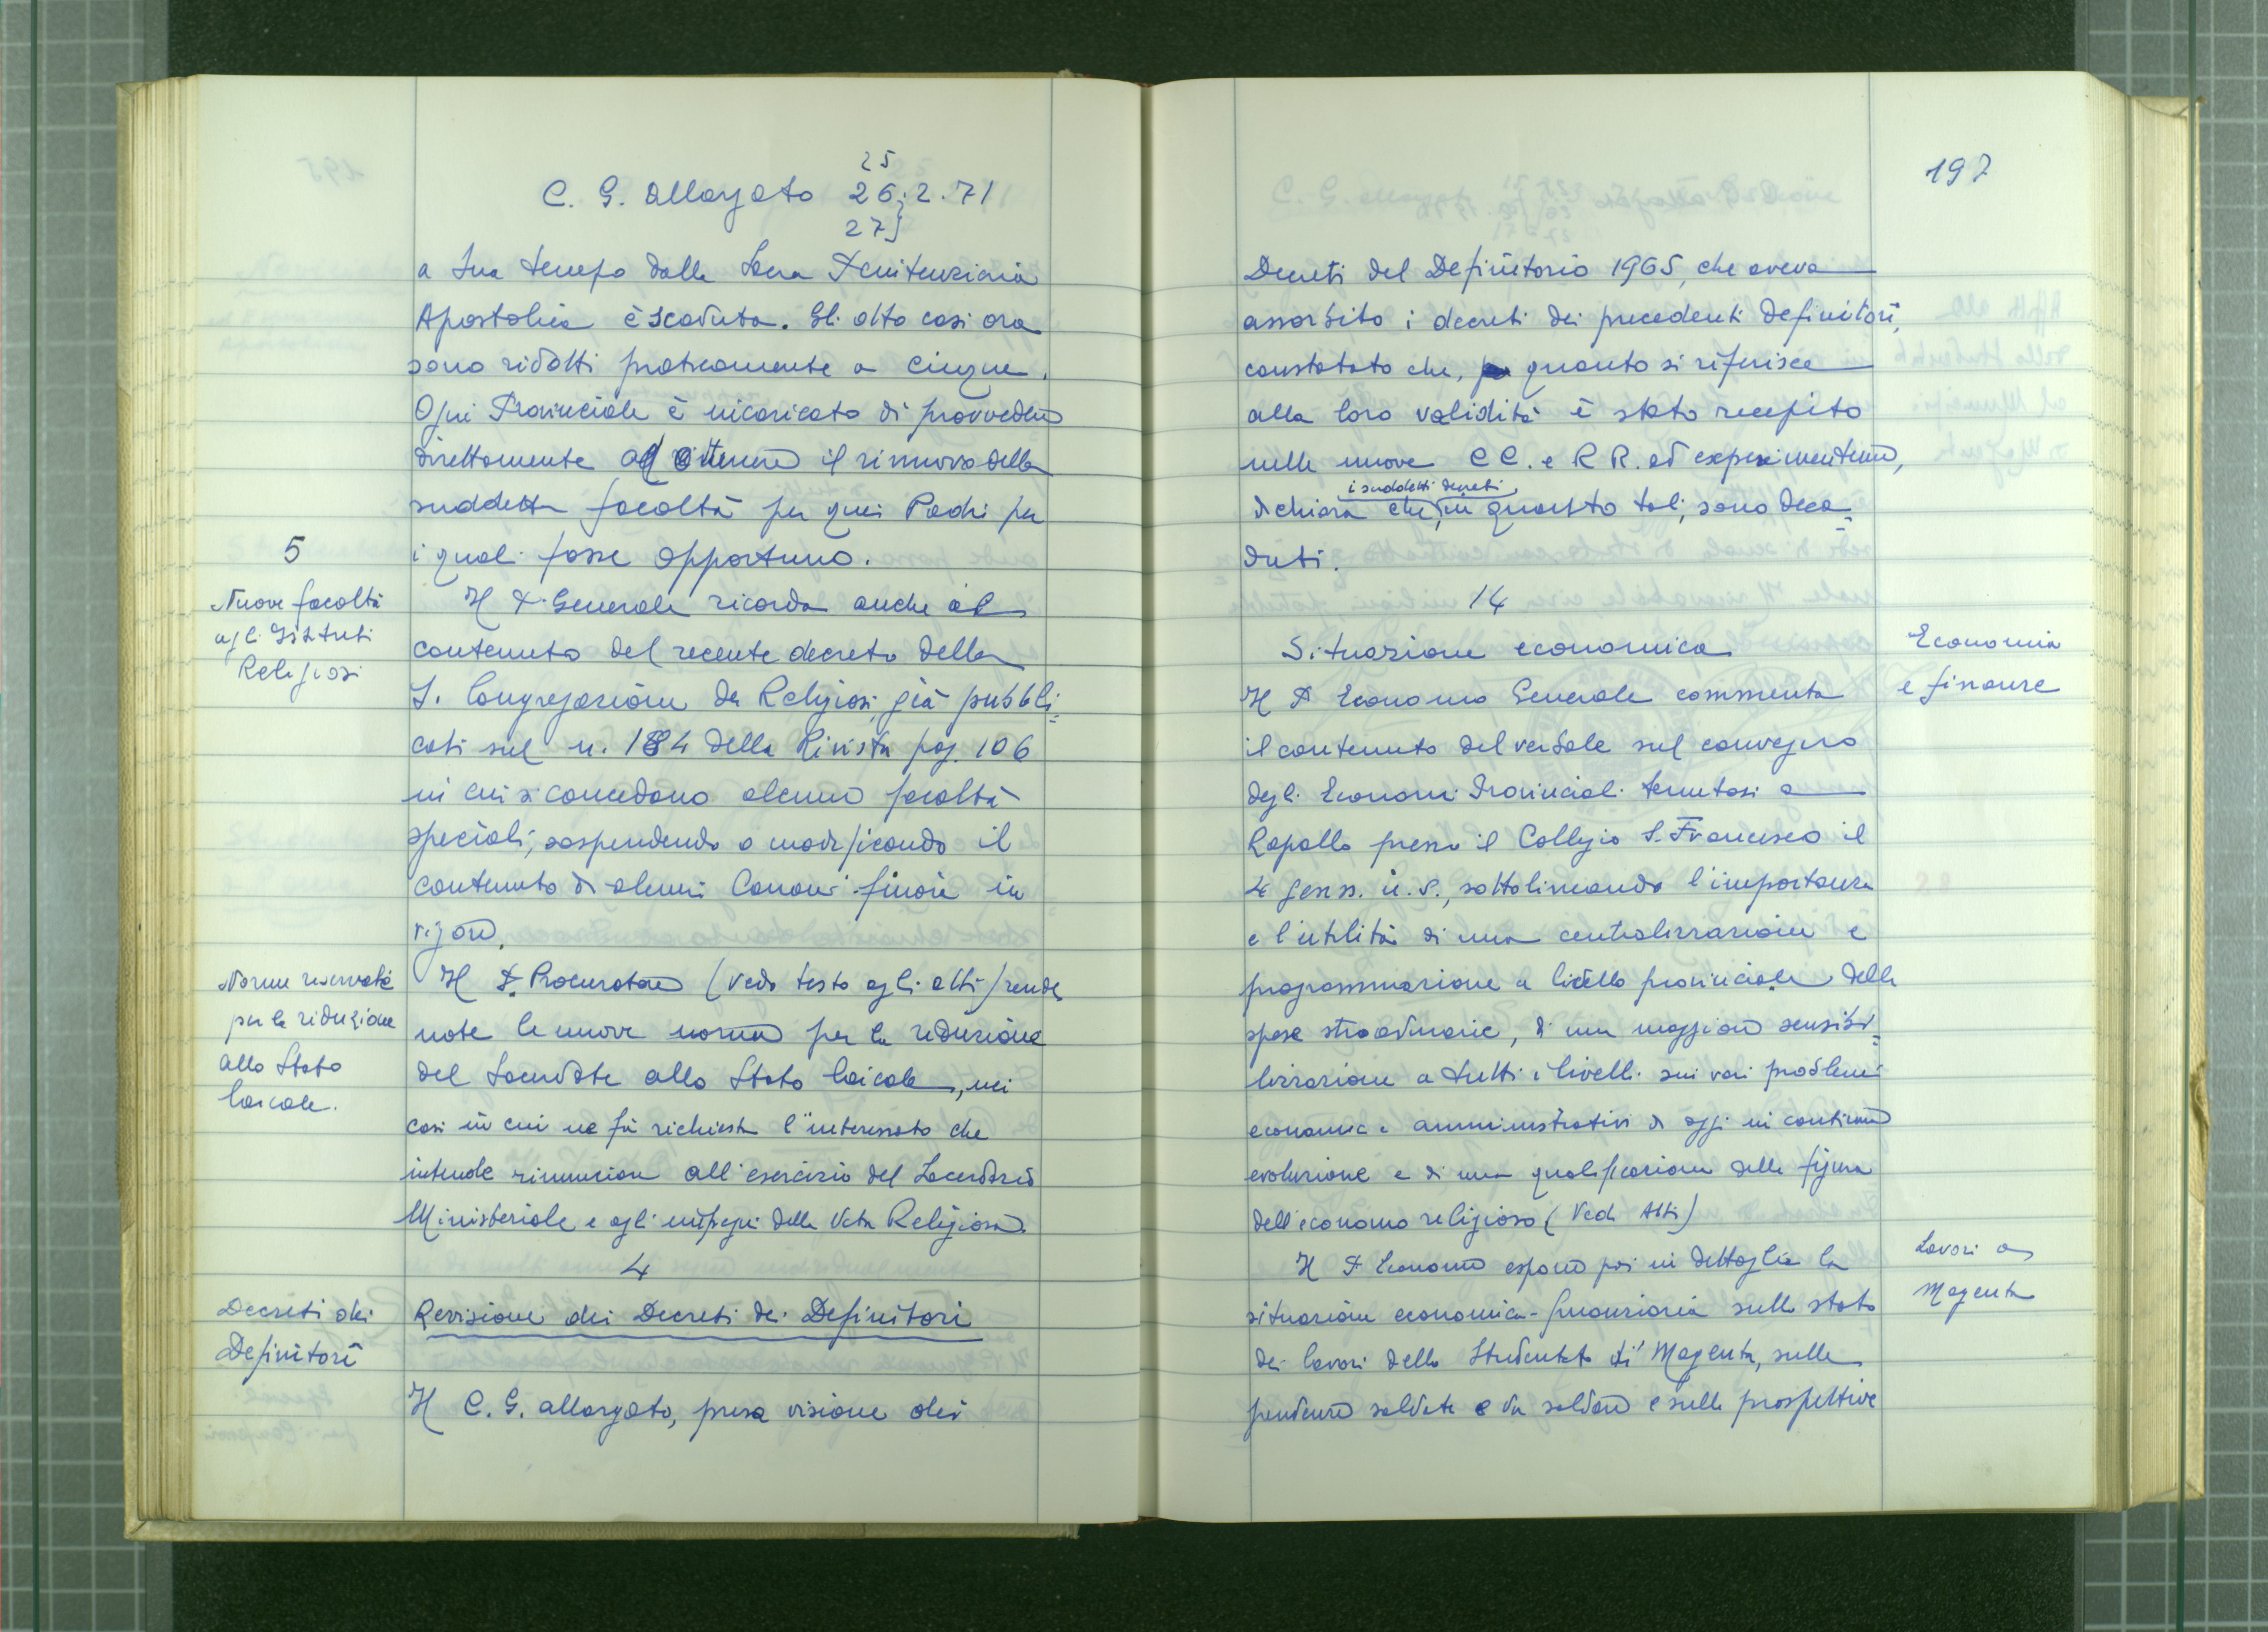 25
C. G. allargato 26.2.71
27
a suo tempo dalla Sacra Penitenzieria
Apostolica è scaduta. Gli otto casi ora
sono ridotti praticamente a cinque.
Ogni Provinciale è incaricato di provvedere
direttamente ad ottenere il rinnovo della
suddetta facoltà per quei Padri per
i quali fosse opportuno.
5
Nuove facoltà
agli Istituti
Religiosi
Il P. Generale ricorda anche il
contenuto del recente decreto della
S. Congregazione dei Religiosi, già pubbli=
cati sul n. 184 della Rivista pag. 106
in cui si concedono alcune facoltà
speciali, sospendendo o modificando il
contenuto di alcuni Canoni finora in
vigore.
Norme riservate
per la riduzione
allo Stato
laicale.
Il P. Procuratore (vedi testo agli atti) rende
note le nuove norme per la riduzione
del Sacerdote allo Stato laicale, nei
casi in cui ne fa richiesta l'interessato che
intende rinunciare all'esercizio del Sacerdozio
Ministeriale e agli impegni della Vita Religiosa.
4
Decreti dei
Definitori
Revisione dei Decreti dei Definitori
Il C. G. allargato, presa visione dei
197
Decreti del Definitorio 1965, che aveva
assorbito i decreti dei precedenti definitori,
constatato che, quanto si riferisce
alla loro validità è stato recepito
nelle nuove CC. e RR. ad experimentum,
i suddetti decreti
dichiara che, in quanto tali, sono deca=
duti.
14
Situazione economica
Economia
e finanze
Il P. Economo Generale commenta
il contenuto del verbale sul convegno
degli Economi Provinciali tenutosi a
Rapallo presso il Collegio S. Francesco il
4 genn. u.s., sottolineando l'importanza
e l'utilità di una centralizzazione e
programmazione a livello provinciale delle
spese straordinarie, di una maggiore sensibi=
lizzazione a tutti i livelli sui vari problemi
economici e amministrativi di oggi in continua
evoluzione e di una qualificazione della figura
dell'economo religioso (Vedi Atti)
Lavori a
Magenta
Il P. Economo espone poi in dettaglio la
situazione economica-finanziaria sullo stato
dei lavori dello Studentato di Magenta, sulle
pendenze saldate e da saldare e sulle prospettive